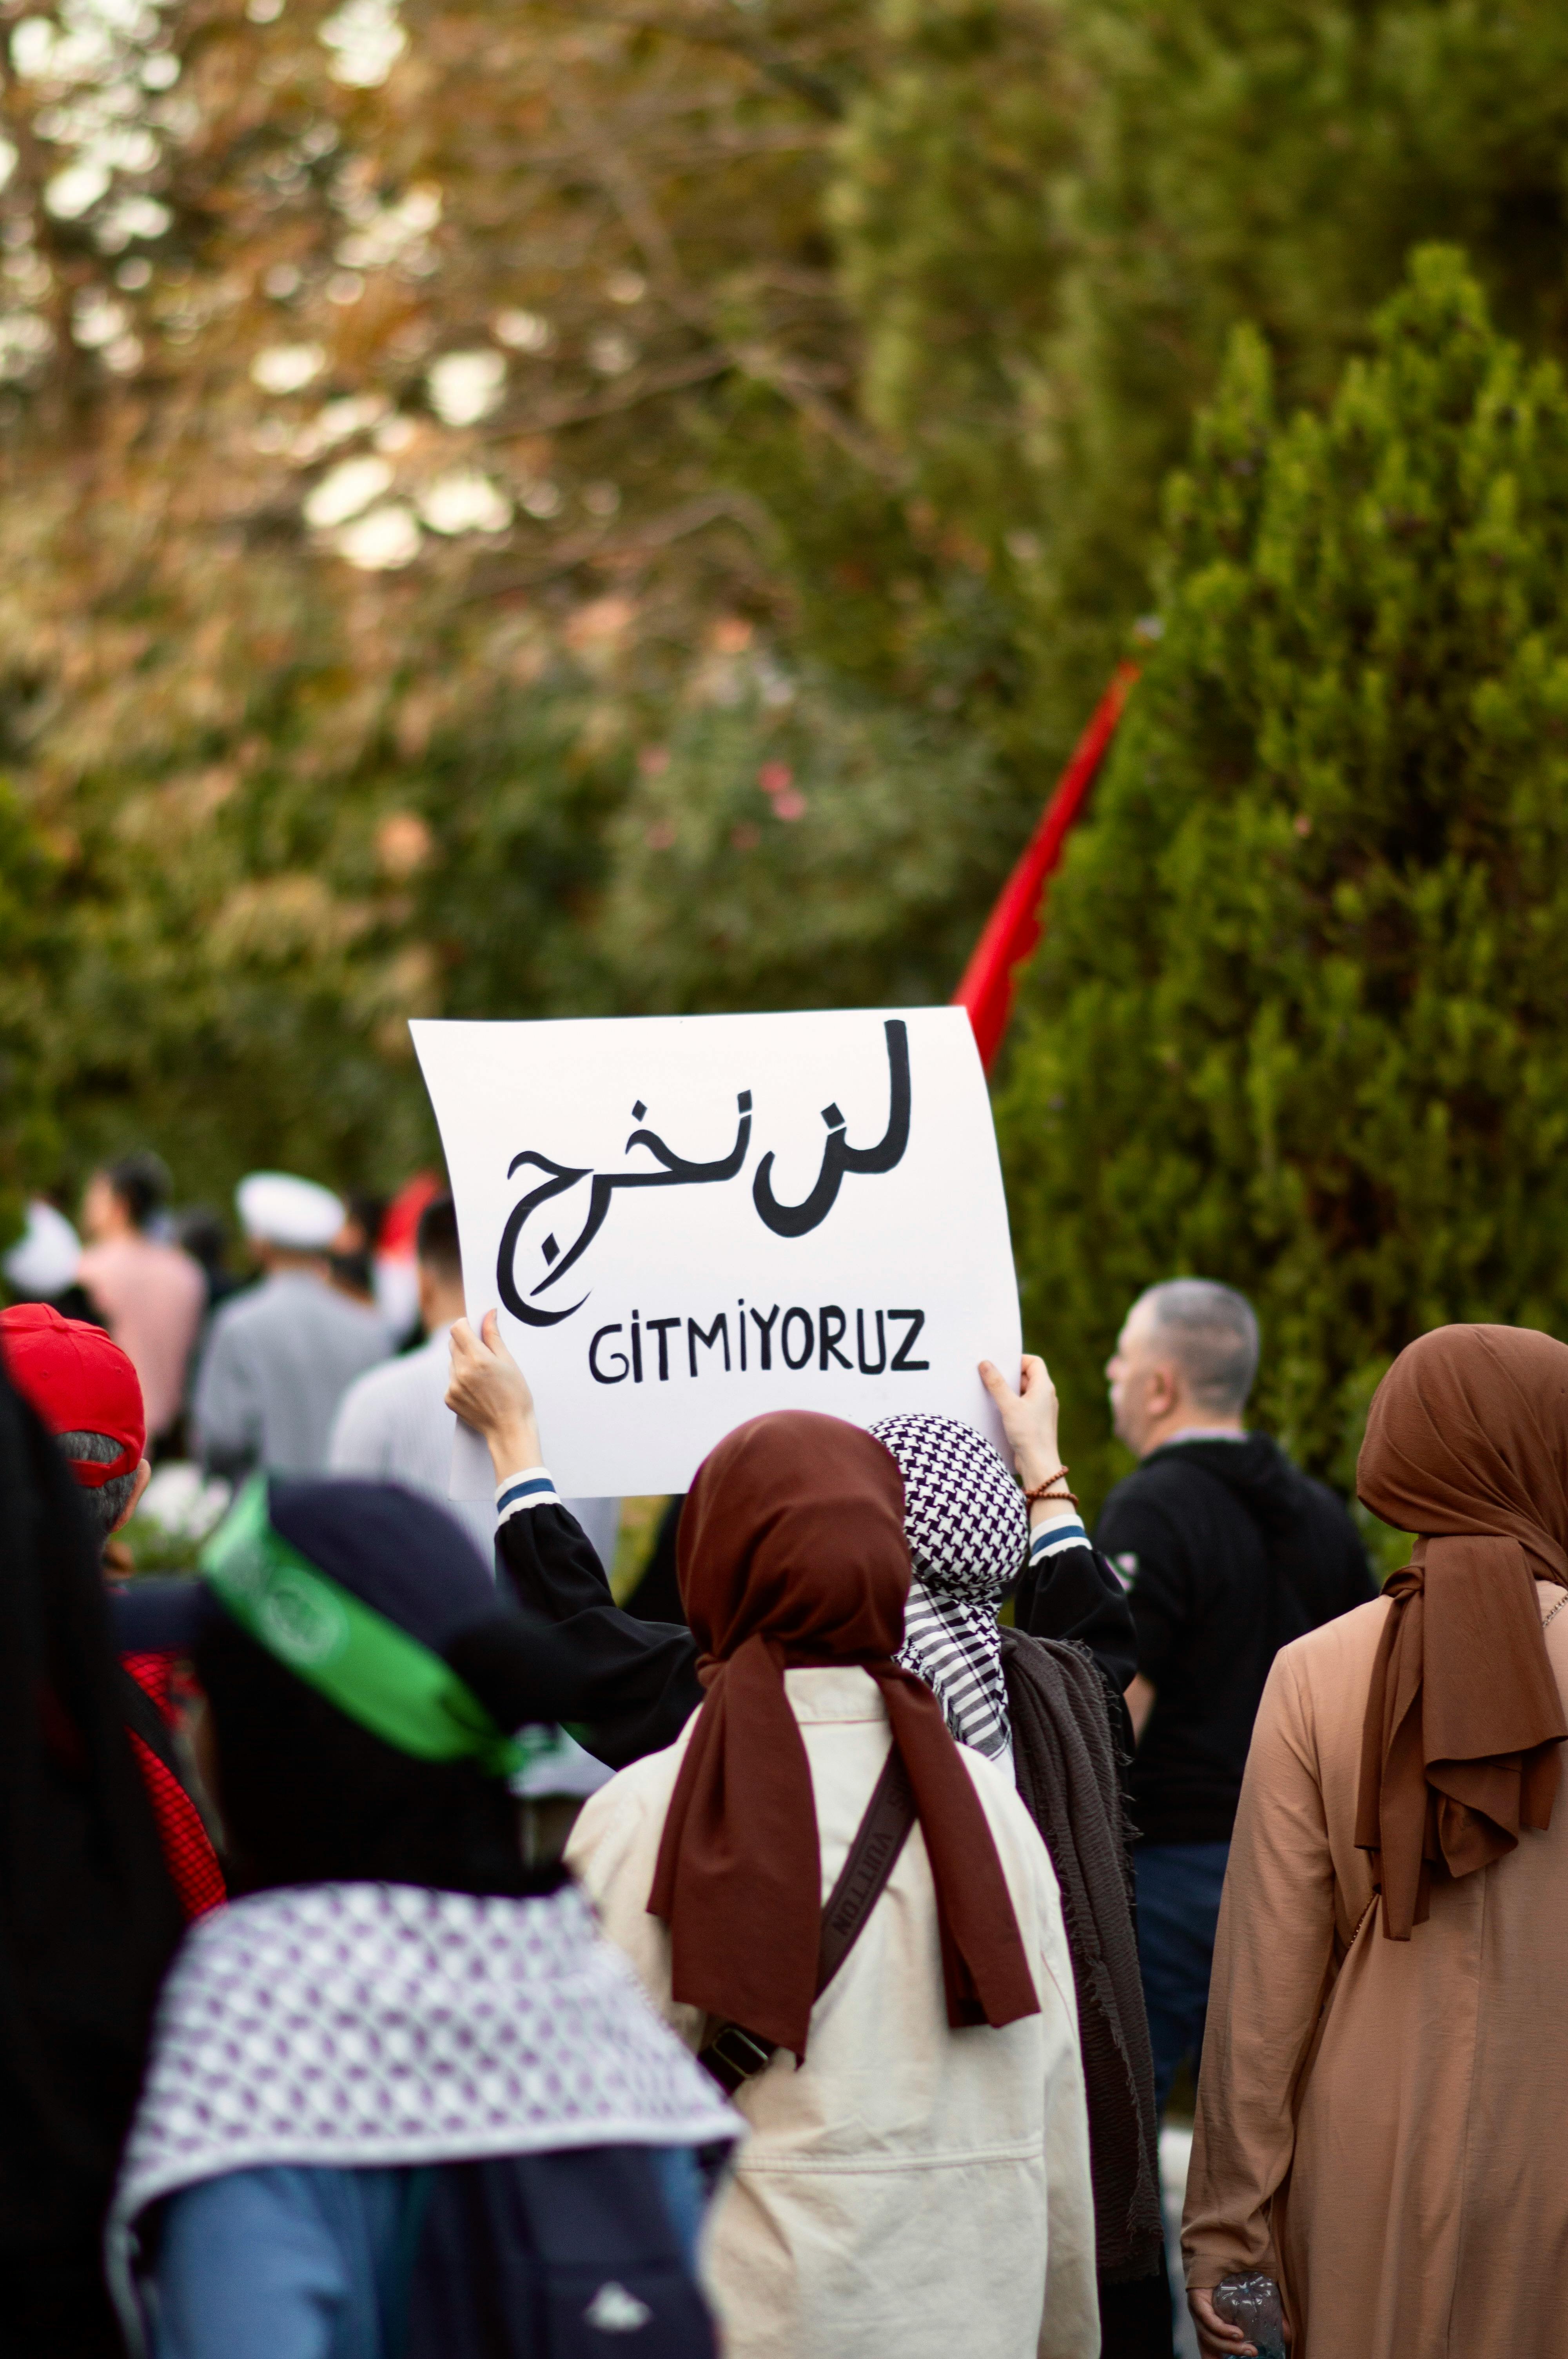 لن نخرج
GİTMİYORUZ
VUITTON